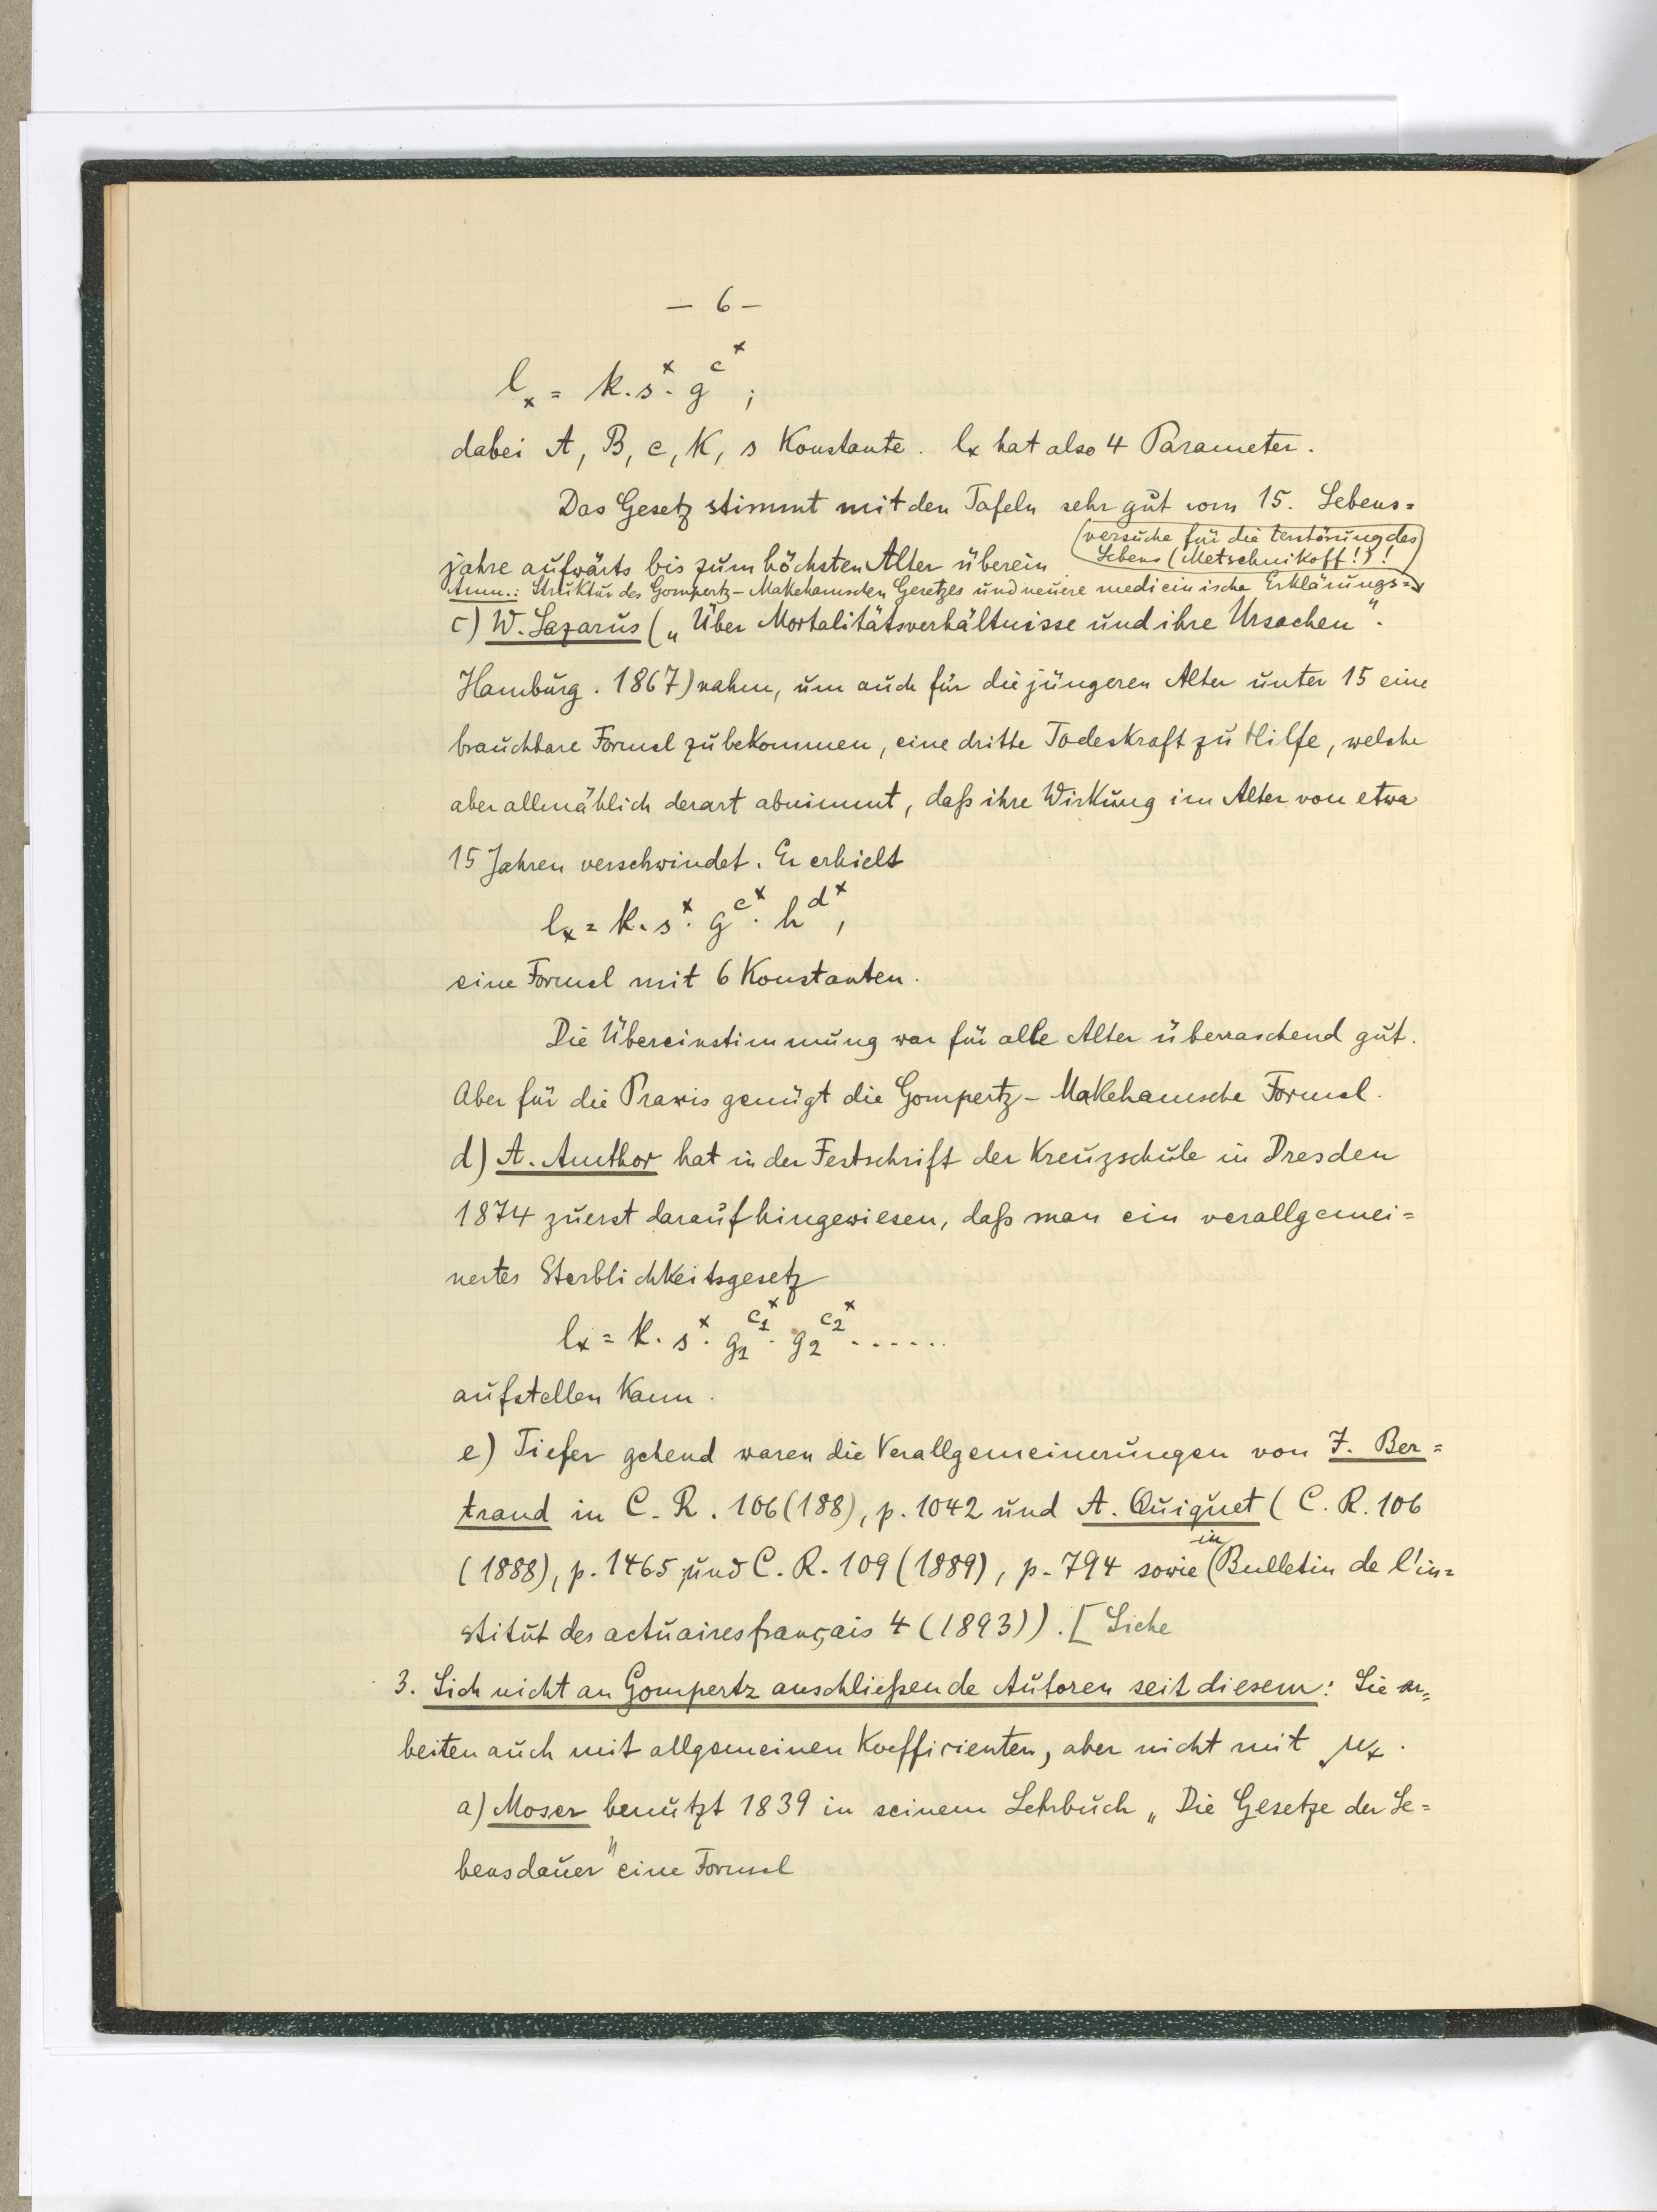 — 6 —
lₓ = k. sˣ. g^c^x ;
dabei A, B, c, K, s Konstante. lₓ hat also 4 Parameter.
Das Gesetz stimmt mit den Tafeln sehr gut vom 15. Lebens=
jahre aufwärts bis zum höchsten Alter überein
Anm.: Struktur des Gompertz-Makehamschen Gesetzes und neuere medicinische Erklärungs=
versuche für die Zerstörung des
Lebens (Metschnikoff!)!
c) W. Lazarus („Über Mortalitätsverhältnisse und ihre Ursachen".
Hamburg. 1867) nahm, um auch für die jüngeren Alter unter 15 eine
brauchbare Formel zu bekommen, eine dritte Todeskraft zu Hilfe, welche
aber allmählich derart abnimmt, daß ihre Wirkung im Alter von etwa
15 Jahren verschwindet. Er erhielt
lₓ = k. sˣ. g^c^x. h^d^x,
eine Formel mit 6 Konstanten.
Die Übereinstimmung war für alle Alter überraschend gut.
Aber für die Praxis genügt die Gompertz-Makehamsche Formel.
d) A. Amthor hat in der Festschrift der Kreuzschule in Dresden
1874 zuerst darauf hingewiesen, daß man ein verallgemei=
nertes Sterblichkeitsgesetz
lₓ = k. sˣ. g₁^c₁^x. g₂^c₂^x . . . . . .
aufstellen kann.
e) Tiefer gehend waren die Verallgemeinerungen von J. Ber=
trand in C. R. 106 (188), p. 1042 und A. Quiquet (C. R. 106
(1888), p. 1465 und C. R. 109 (1889), p. 794 sowie in (Bulletin de l'in=
stitut des actuaires français 4 (1893)). [Siehe
3. Sich nicht an Gompertz anschließende Autoren seit diesem: Sie ar=
beiten auch mit allgemeinen Koefficienten, aber nicht mit μₓ.
a) Moser benützt 1839 in seinem Lehrbuch „Die Gesetze der Le=
bensdauer" eine Formel